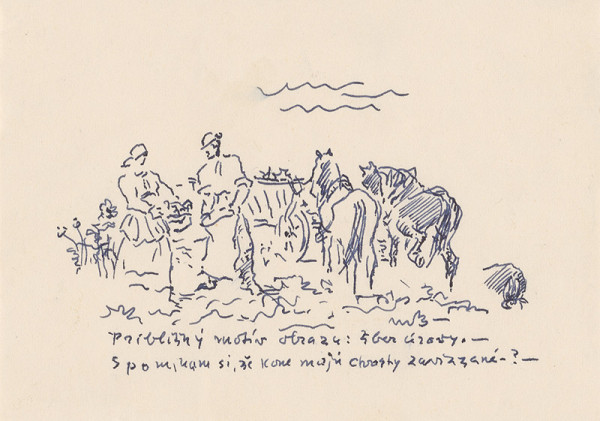 Približný motív obrazu: Zber úrody.—
Spomínam si, že kone majú chvosty zaviazané-?—